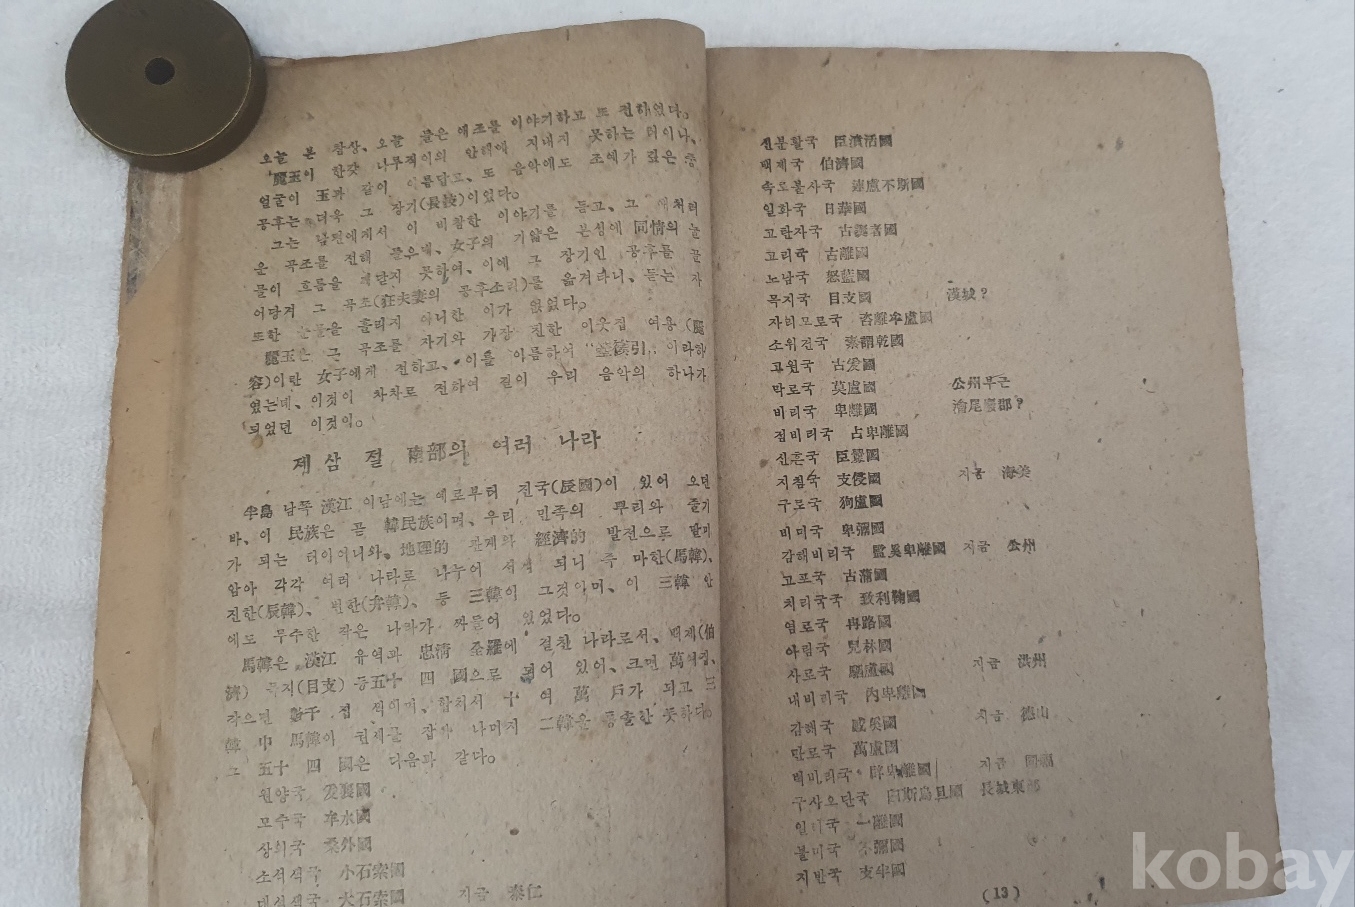 오늘 본 참상、오늘 들은 애조를 이야기하고 또 전하였다。
麗玉이 한갓 나무꾼이의 안해에 지내지 못하는 터이나、
얼굴이 玉과 같이 아름답고、또 음악에도 조예가 깊은 중
공후는 더욱 그 장기(長技)이었다。
그는 남편에게서 이 비참한 이야기를 듣고、그
운 곡조를 전해 들으매、女子의 기얇은 본성에 同情의 눈
물이 흐름을 깨닫지 못하여、이에 그 장기인 공후를 끌
어당겨 그 곡조(狂夫妻의 공후소리)를 옮겨타니、듣는 자
또한 눈물을 흘리지 아니한 이가 없었다。
麗玉는 그 곡조를 자기와 가장 친한 이웃집 여용(麗
容)이란 女子에게 전하고、이를 이름하여 "箜篌引"이라하
였는데、이것이 차차로 전하여 길이 우리 음악의 하나가
되었던 이것이。
제 삼 절 南部의 여러 나라
半島 남쪽 漢江 이남에는 예로부터 진국(辰國)이 있어 오던
바、이 民族은 곧 韓民族이며、우리 민족의 뿌리와 줄기
가 되는 터이어니와、地理的 관계와 經濟的 발전으로 말미
암아 각각 여러 나라로 나누어 서게 되니 즉 마한(馬韓)、
진한(辰韓)、변한(弁韓)、등 三韓이 그것이며、이 三韓 안
에도 무수한 작은 나라가 짜들어 있었다。
馬韓은、漢江 유역과 忠淸 全羅에 걸친 나라로서、백제(伯
濟) 목지(目支) 등五十 四 國으로 되어 있어、크면 萬여집、
작으면 數千 집 씩이며、합쳐서 十 여 萬 戶가 되고 三
韓 中 馬韓이 권세를 잡아 나머지 二韓을 통솔한 듯하다。
그 五十 四 國은 다음과 같다。
원양국 爰襄國
모수국 牟水國
상외국 桑外國
소석색국 小石索國
대석색국 大石索國 지금 泰仁
신분활국 臣濆活國
백제국 伯濟國
속로불사국 速盧不斯國
일화국 日華國
고탄자국 古誕者國
고리국 古離國
노남국 怒藍國
목지국 目支國 漢城?
자리모로국 咨離牟盧國
소위건국 素謂乾國
고원국 古爰國
막로국 莫盧國 公州부근
비리국 卑離國 渝尾廢郡?
점비리국 占卑離國
신흔국 臣釁國
지침국 支侵國 지금 海美
구로국 狗盧國
비미국 卑彌國
감해비리국 監奚卑離國 지금 公州
고포국 古蒲國
치리국국 致利鞠國
염로국 冉路國
아림국 兒林國
사로국 駟盧國 지금 洪州
내비리국 內卑離國
감해국 感奚國 지금 德山
만로국 萬盧國
벽비리국 辟卑離國 지금
구사오단국 臼斯烏旦國 長城東部
일리국 一離國
불미국 不彌國
지반국 支半國
(13)
kobay